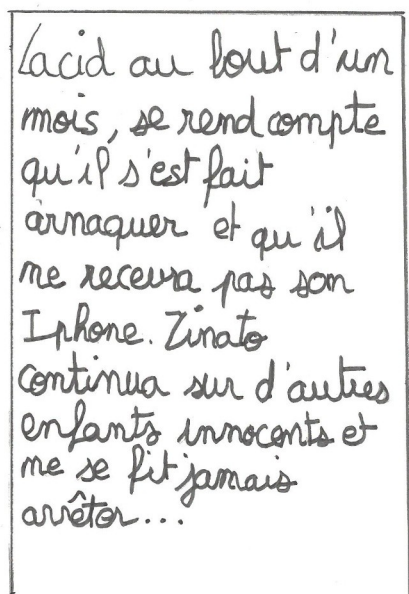 Lacid au bout d'un
mois, se rend compte
qu'il s'est fait
arnaquer et qu'il
ne recevra pas son
Iphone. Zinato
continua sur d'autres
enfants innocents et
ne se fit jamais
arrêter...